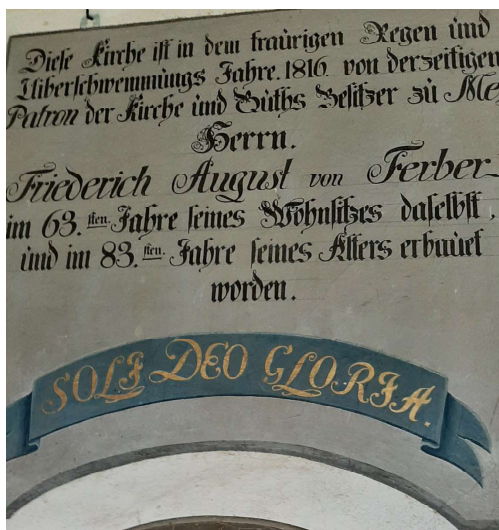 Diese Kirche ist in dem traürigen Regen ünd
Uiberschwemmüngs Jahre. 1816. von derzeitigen
Patron der Kirche ünd Güths Besitzer zü Me
Herrn.
Friederich August von Ferber
im 63.sten. Jahre seines Wohnsitzes daselbst,
ünd im 83.sten. Jahre seines Alters erbaüet
worden.
SOLI DEO GLORIA.